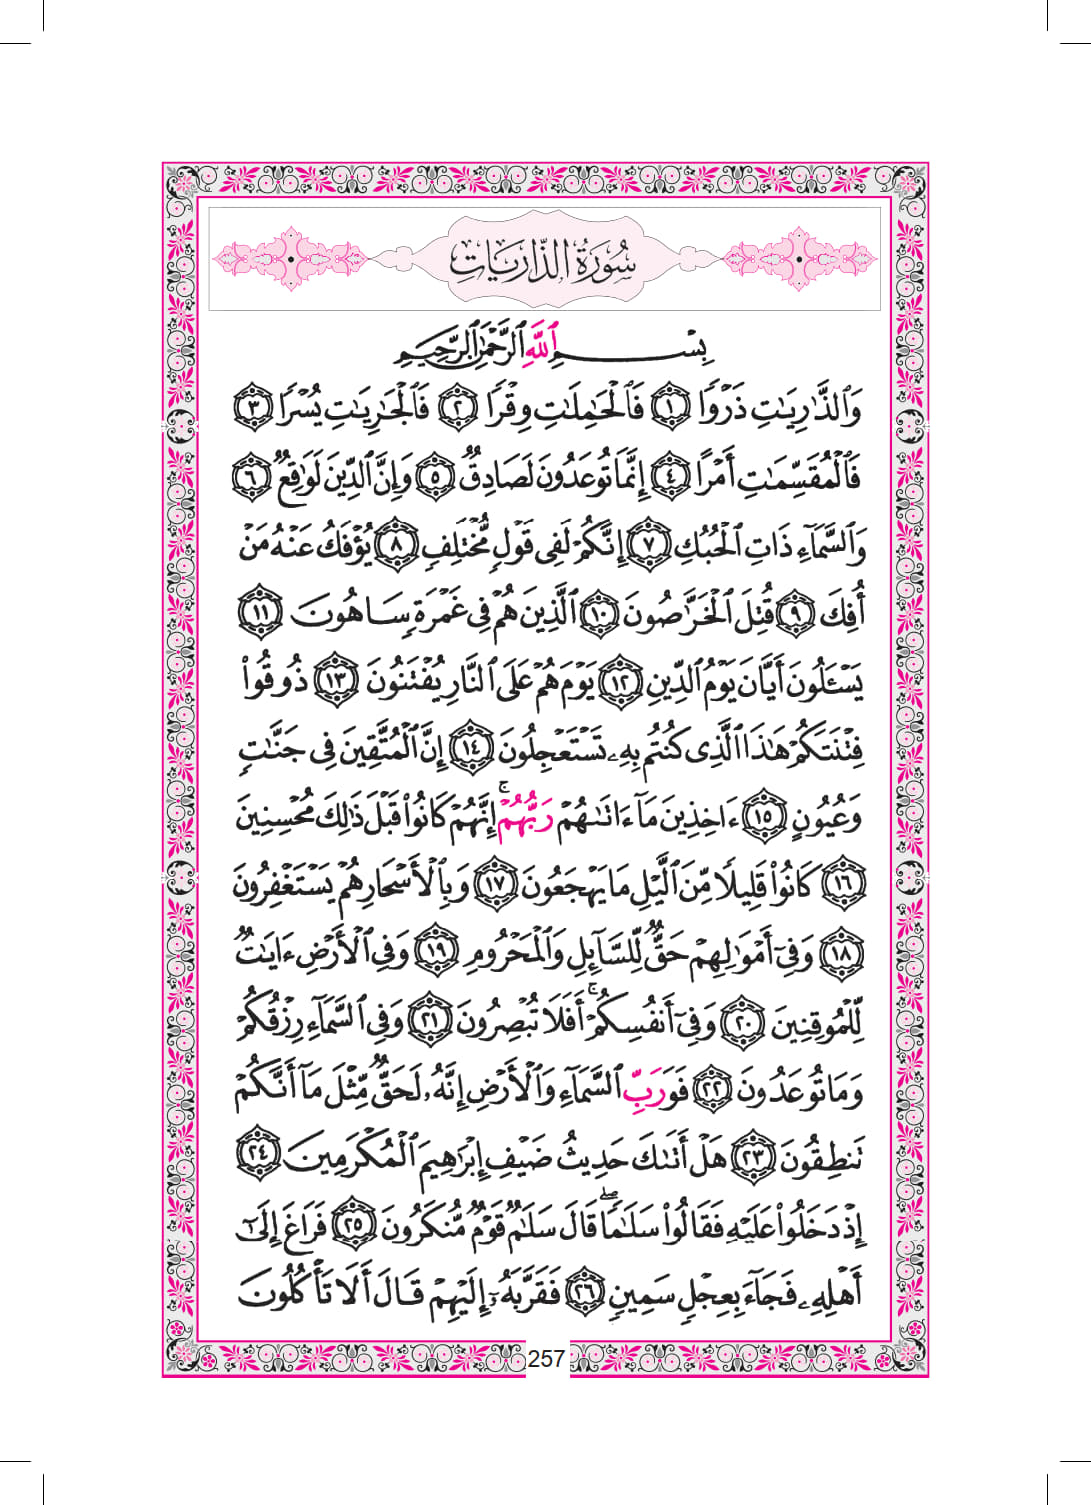 سُورَةُ الذَّارِيَات
بِسْمِ ٱللَّهِ ٱلرَّحْمَٰنِ ٱلرَّحِيمِ
وَٱلذَّٰرِيَٰتِ ذَرْوًا ١ فَٱلْحَٰمِلَٰتِ وِقْرًا ٢ فَٱلْجَٰرِيَٰتِ يُسْرًا ٣
فَٱلْمُقَسِّمَٰتِ أَمْرًا ٤ إِنَّمَا تُوعَدُونَ لَصَادِقٌ ٥ وَإِنَّ ٱلدِّينَ لَوَٰقِعٌ ٦
وَٱلسَّمَآءِ ذَاتِ ٱلْحُبُكِ ٧ إِنَّكُمْ لَفِى قَوْلٍ مُّخْتَلِفٍ ٨ يُؤْفَكُ عَنْهُ مَنْ
أُفِكَ ٩ قُتِلَ ٱلْخَرَّٰصُونَ ١٠ ٱلَّذِينَ هُمْ فِى غَمْرَةٍ سَاهُونَ ١١
يَسْـَٔلُونَ أَيَّانَ يَوْمُ ٱلدِّينِ ١٢ يَوْمَ هُمْ عَلَى ٱلنَّارِ يُفْتَنُونَ ١٣ ذُوقُوا۟
فِتْنَتَكُمْ هَٰذَا ٱلَّذِى كُنتُم بِهِۦ تَسْتَعْجِلُونَ ١٤ إِنَّ ٱلْمُتَّقِينَ فِى جَنَّٰتٍ
وَعُيُونٍ ١٥ ءَاخِذِينَ مَآ ءَاتَىٰهُمْ رَبُّهُمْ ۚ إِنَّهُمْ كَانُوا۟ قَبْلَ ذَٰلِكَ مُحْسِنِينَ
١٦ كَانُوا۟ قَلِيلًا مِّنَ ٱلَّيْلِ مَا يَهْجَعُونَ ١٧ وَبِٱلْأَسْحَارِ هُمْ يَسْتَغْفِرُونَ
١٨ وَفِىٓ أَمْوَٰلِهِمْ حَقٌّ لِّلسَّآئِلِ وَٱلْمَحْرُومِ ١٩ وَفِى ٱلْأَرْضِ ءَايَٰتٌ
لِّلْمُوقِنِينَ ٢٠ وَفِىٓ أَنفُسِكُمْ ۚ أَفَلَا تُبْصِرُونَ ٢١ وَفِى ٱلسَّمَآءِ رِزْقُكُمْ
وَمَا تُوعَدُونَ ٢٢ فَوَرَبِّ ٱلسَّمَآءِ وَٱلْأَرْضِ إِنَّهُۥ لَحَقٌّ مِّثْلَ مَآ أَنَّكُمْ
تَنطِقُونَ ٢٣ هَلْ أَتَىٰكَ حَدِيثُ ضَيْفِ إِبْرَٰهِيمَ ٱلْمُكْرَمِينَ ٢٤
إِذْ دَخَلُوا۟ عَلَيْهِ فَقَالُوا۟ سَلَٰمًا ۖ قَالَ سَلَٰمٌ قَوْمٌ مُّنكَرُونَ ٢٥ فَرَاغَ إِلَىٰٓ
أَهْلِهِۦ فَجَآءَ بِعِجْلٍ سَمِينٍ ٢٦ فَقَرَّبَهُۥٓ إِلَيْهِمْ قَالَ أَلَا تَأْكُلُونَ
257